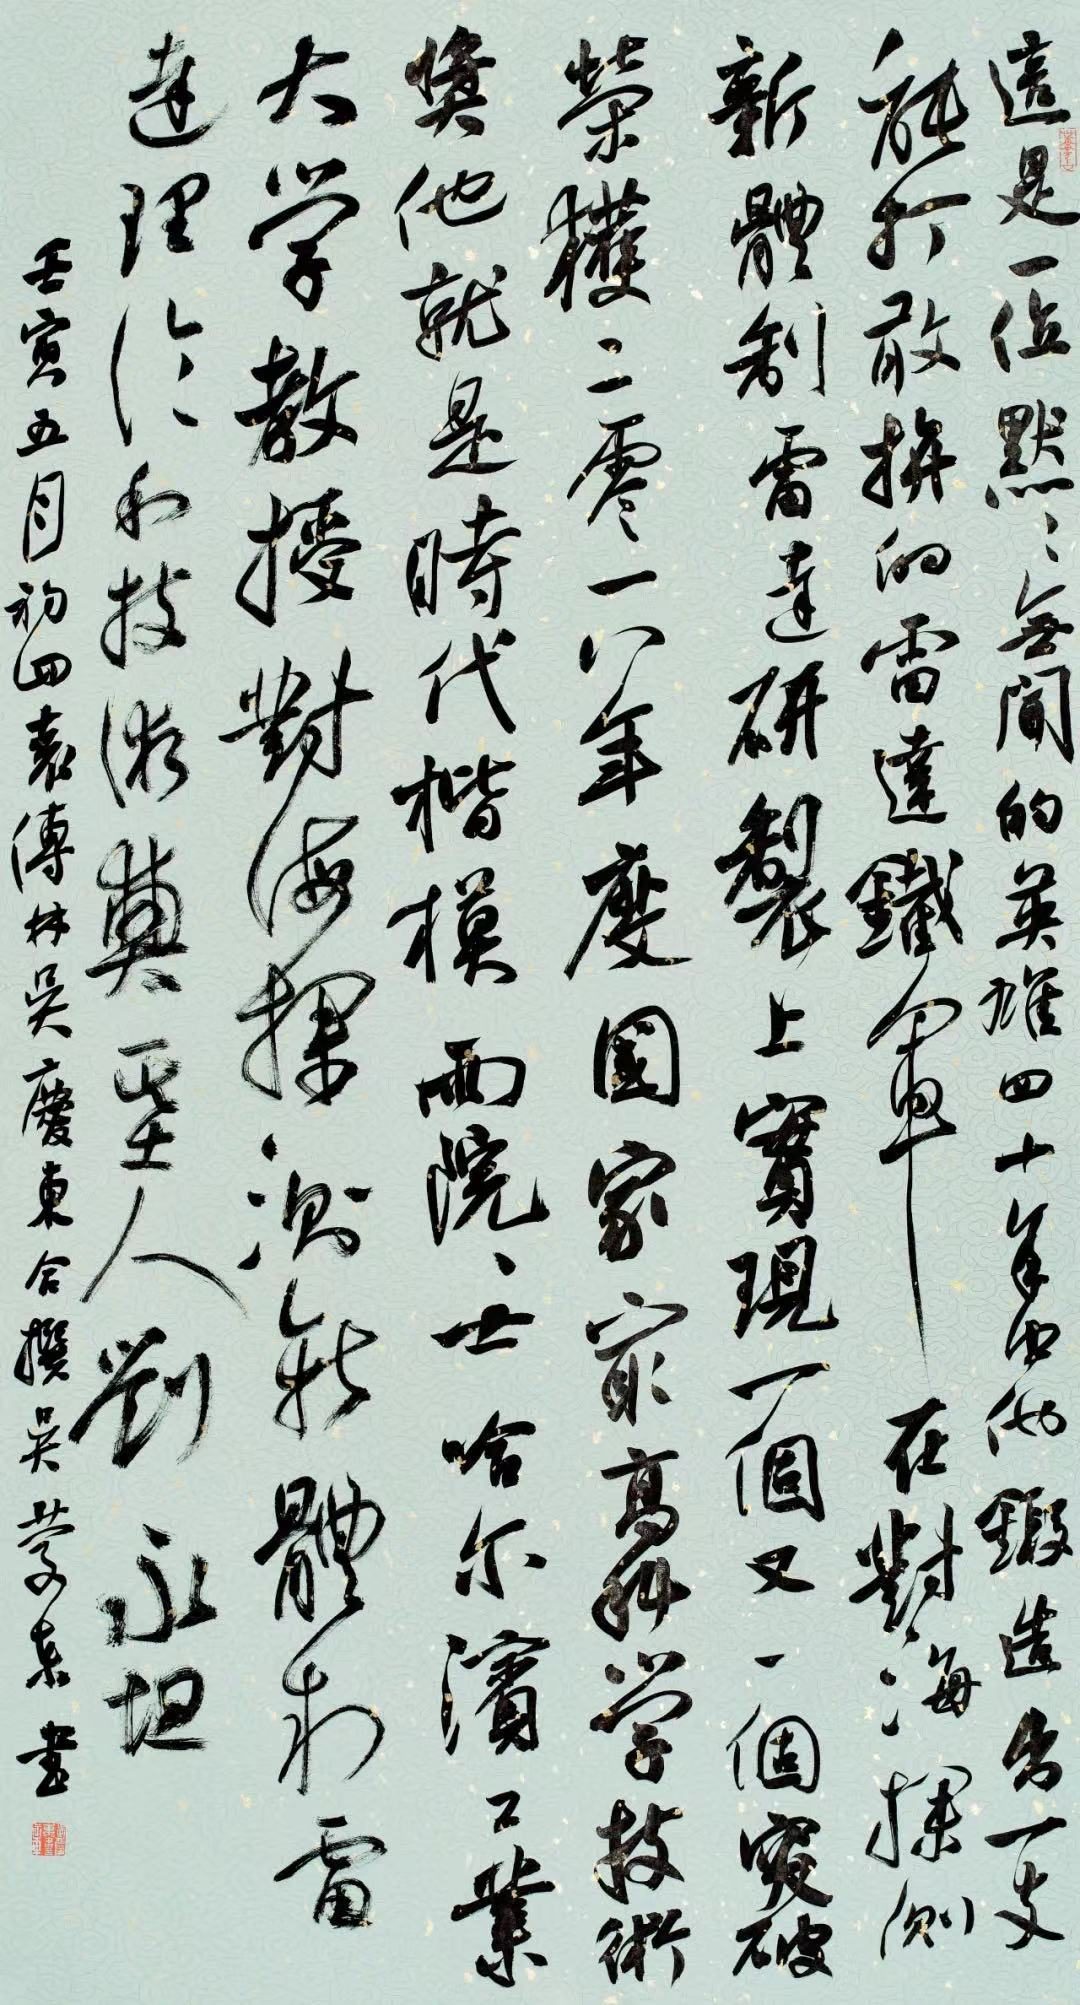 這是一位默默無聞的英雄四十年中他鍛造出一支
能打敢拚的雷達鐵軍在對海探測
新體制雷達研製上實現一個又一個突破
榮獲二零一八年度國家最高科學技術
獎他就是時代楷模兩院院士哈尔濱工業
大学教授對海探測新體制雷
達理论和技術奠基人劉永坦
壬寅五月初四袁傳林吳慶東合撰吴慶東書